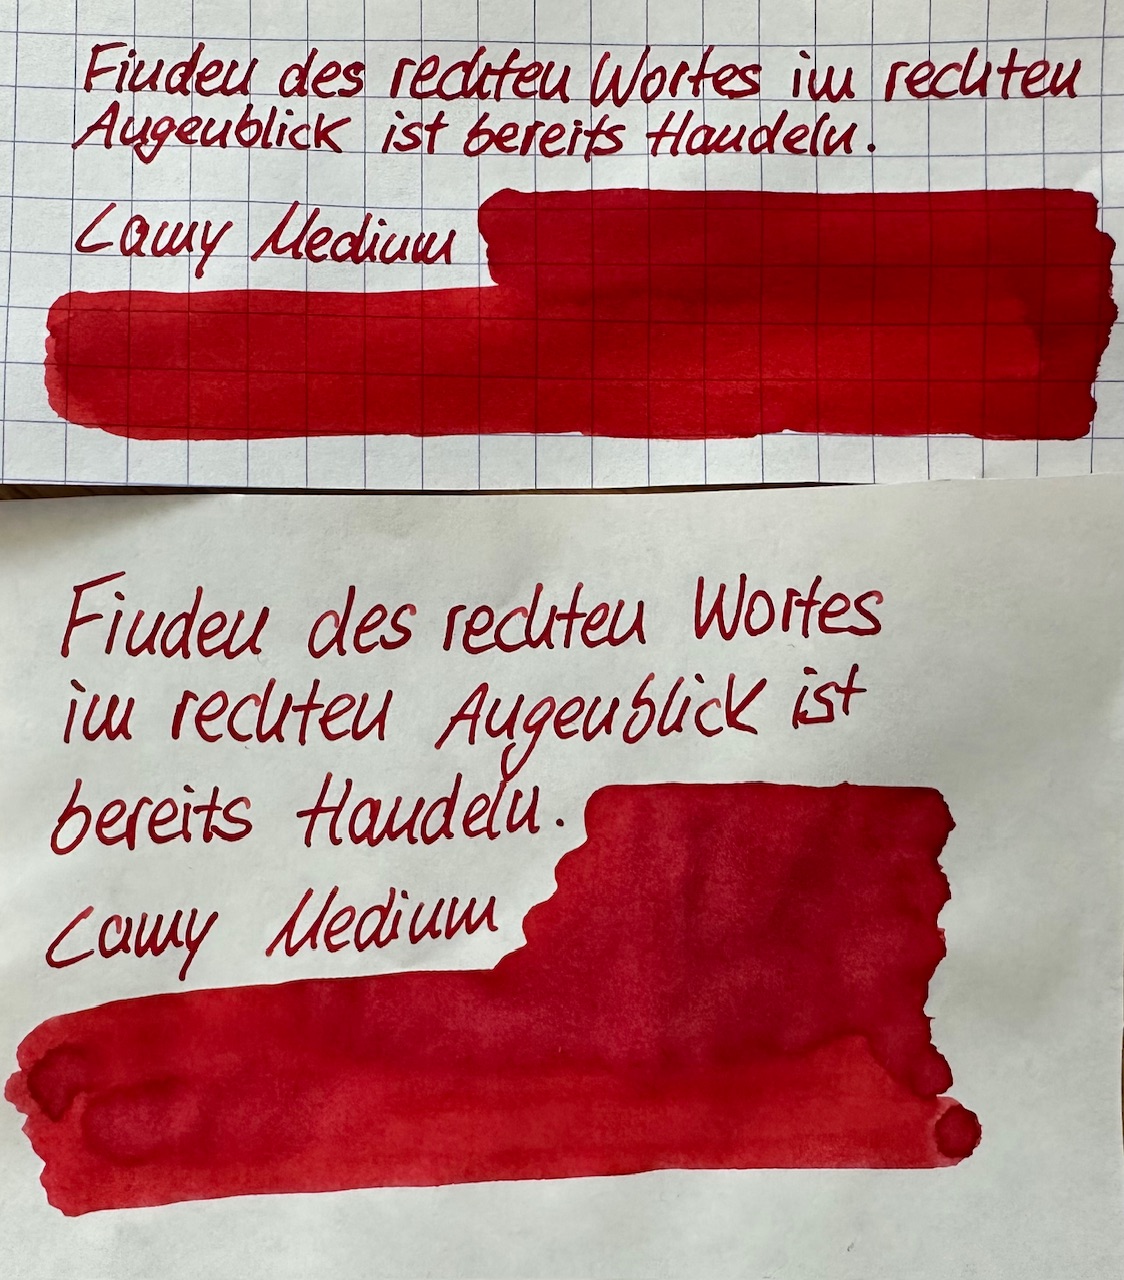 Finden des rechten Wortes im rechten
Augenblick ist bereits Handeln.
Lamy Medium
Finden des rechten Wortes
im rechten Augenblick ist
bereits Handeln.
Lamy Medium